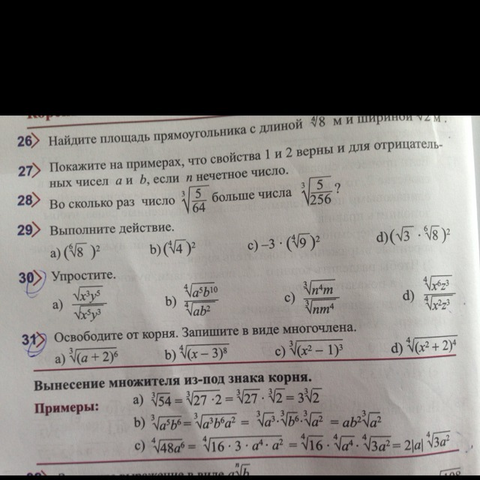 26 Найдите площадь прямоугольника с длиной ∜8 м и шириной √2 м.
27 Покажите на примерах, что свойства 1 и 2 верны и для отрицатель-
ных чисел a и b, если n нечетное число.
28 Во сколько раз число ∛(5/64) больше числа ∛(5/256) ?
29 Выполните действие.
a) (⁶√8)² b) (∜4)² c) –3 · (∜9)² d) (√3 · ⁶√8)²
30 Упростите.
a) √(x³y⁵)/√(x⁵y³) b) ∜(a⁵b¹⁰)/∜(ab²) c) ∛(n⁴m)/∛(nm⁴) d) ∜(x⁶z³)/∜(x²z³)
31 Освободите от корня. Запишите в виде многочлена.
a) ∛(a + 2)⁶ b) ∜(x – 3)⁸ c) ∛(x² – 1)³ d) ∜(x² + 2)⁴
Вынесение множителя из-под знака корня.
Примеры: a) ∛54 = ∛(27 · 2) = ∛27 · ∛2 = 3∛2
b) ∛(a⁵b⁶) = ∛(a³b⁶a²) = ∛a³ · ∛b⁶ · ∛a² = ab²∛a²
c) ∜(48a⁶) = ∜(16 · 3 · a⁴ · a²) = ∜16 · ∜a⁴ · ∜(3a²) = 2|a| ∜(3a²)